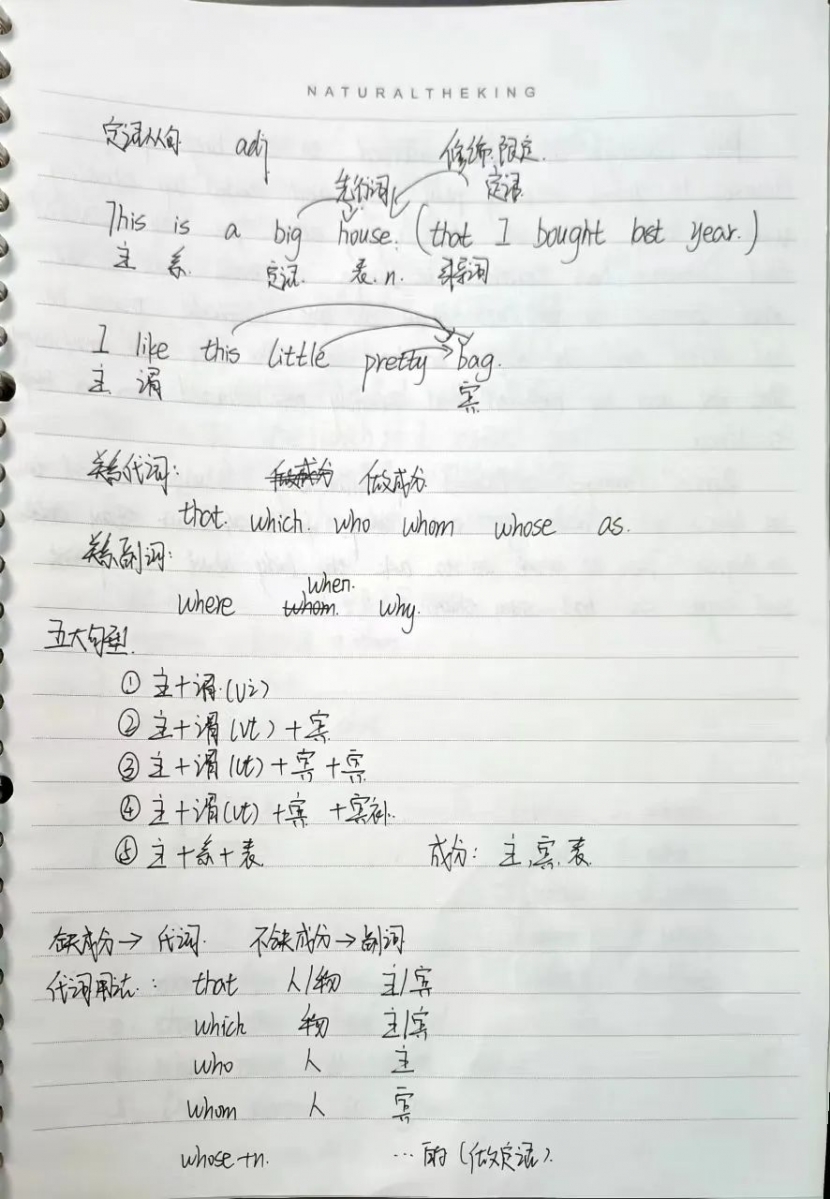 NATURALTHEKING
定语从句 adj 修饰.限定.
先行词 定语
This is a big house. (that I bought last year.)
主 系. 定语. 表.n. 引导词
I like this little pretty bag.
主 谓 宾
关系代词: 做成分
that. which. who whom whose as.
关系副词:
when.
where whom. why.
五大句型.
① 主+谓.(vi)
② 主+谓(vt)+宾
③ 主+谓(vt)+宾+宾
④ 主+谓(vt)+宾+宾补.
⑤ 主+系+表. 成分: 主,宾.表.
缺成分→代词. 不缺成分→副词
代词用法: that 人/物 主/宾
which 物 主/宾
who 人 主
whom 人 宾
whose+n. …的(做定语).